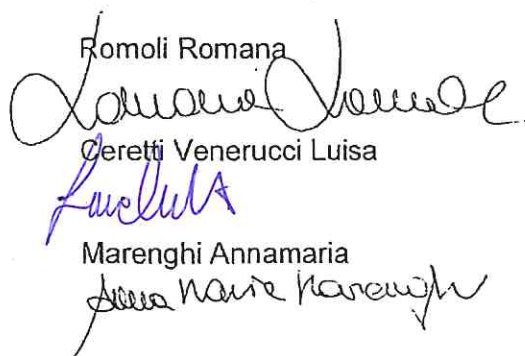 Romoli Romana
Romana Romoli
Ceretti Venerucci Luisa
Marenghi Annamaria
Anna Maria Marenghi